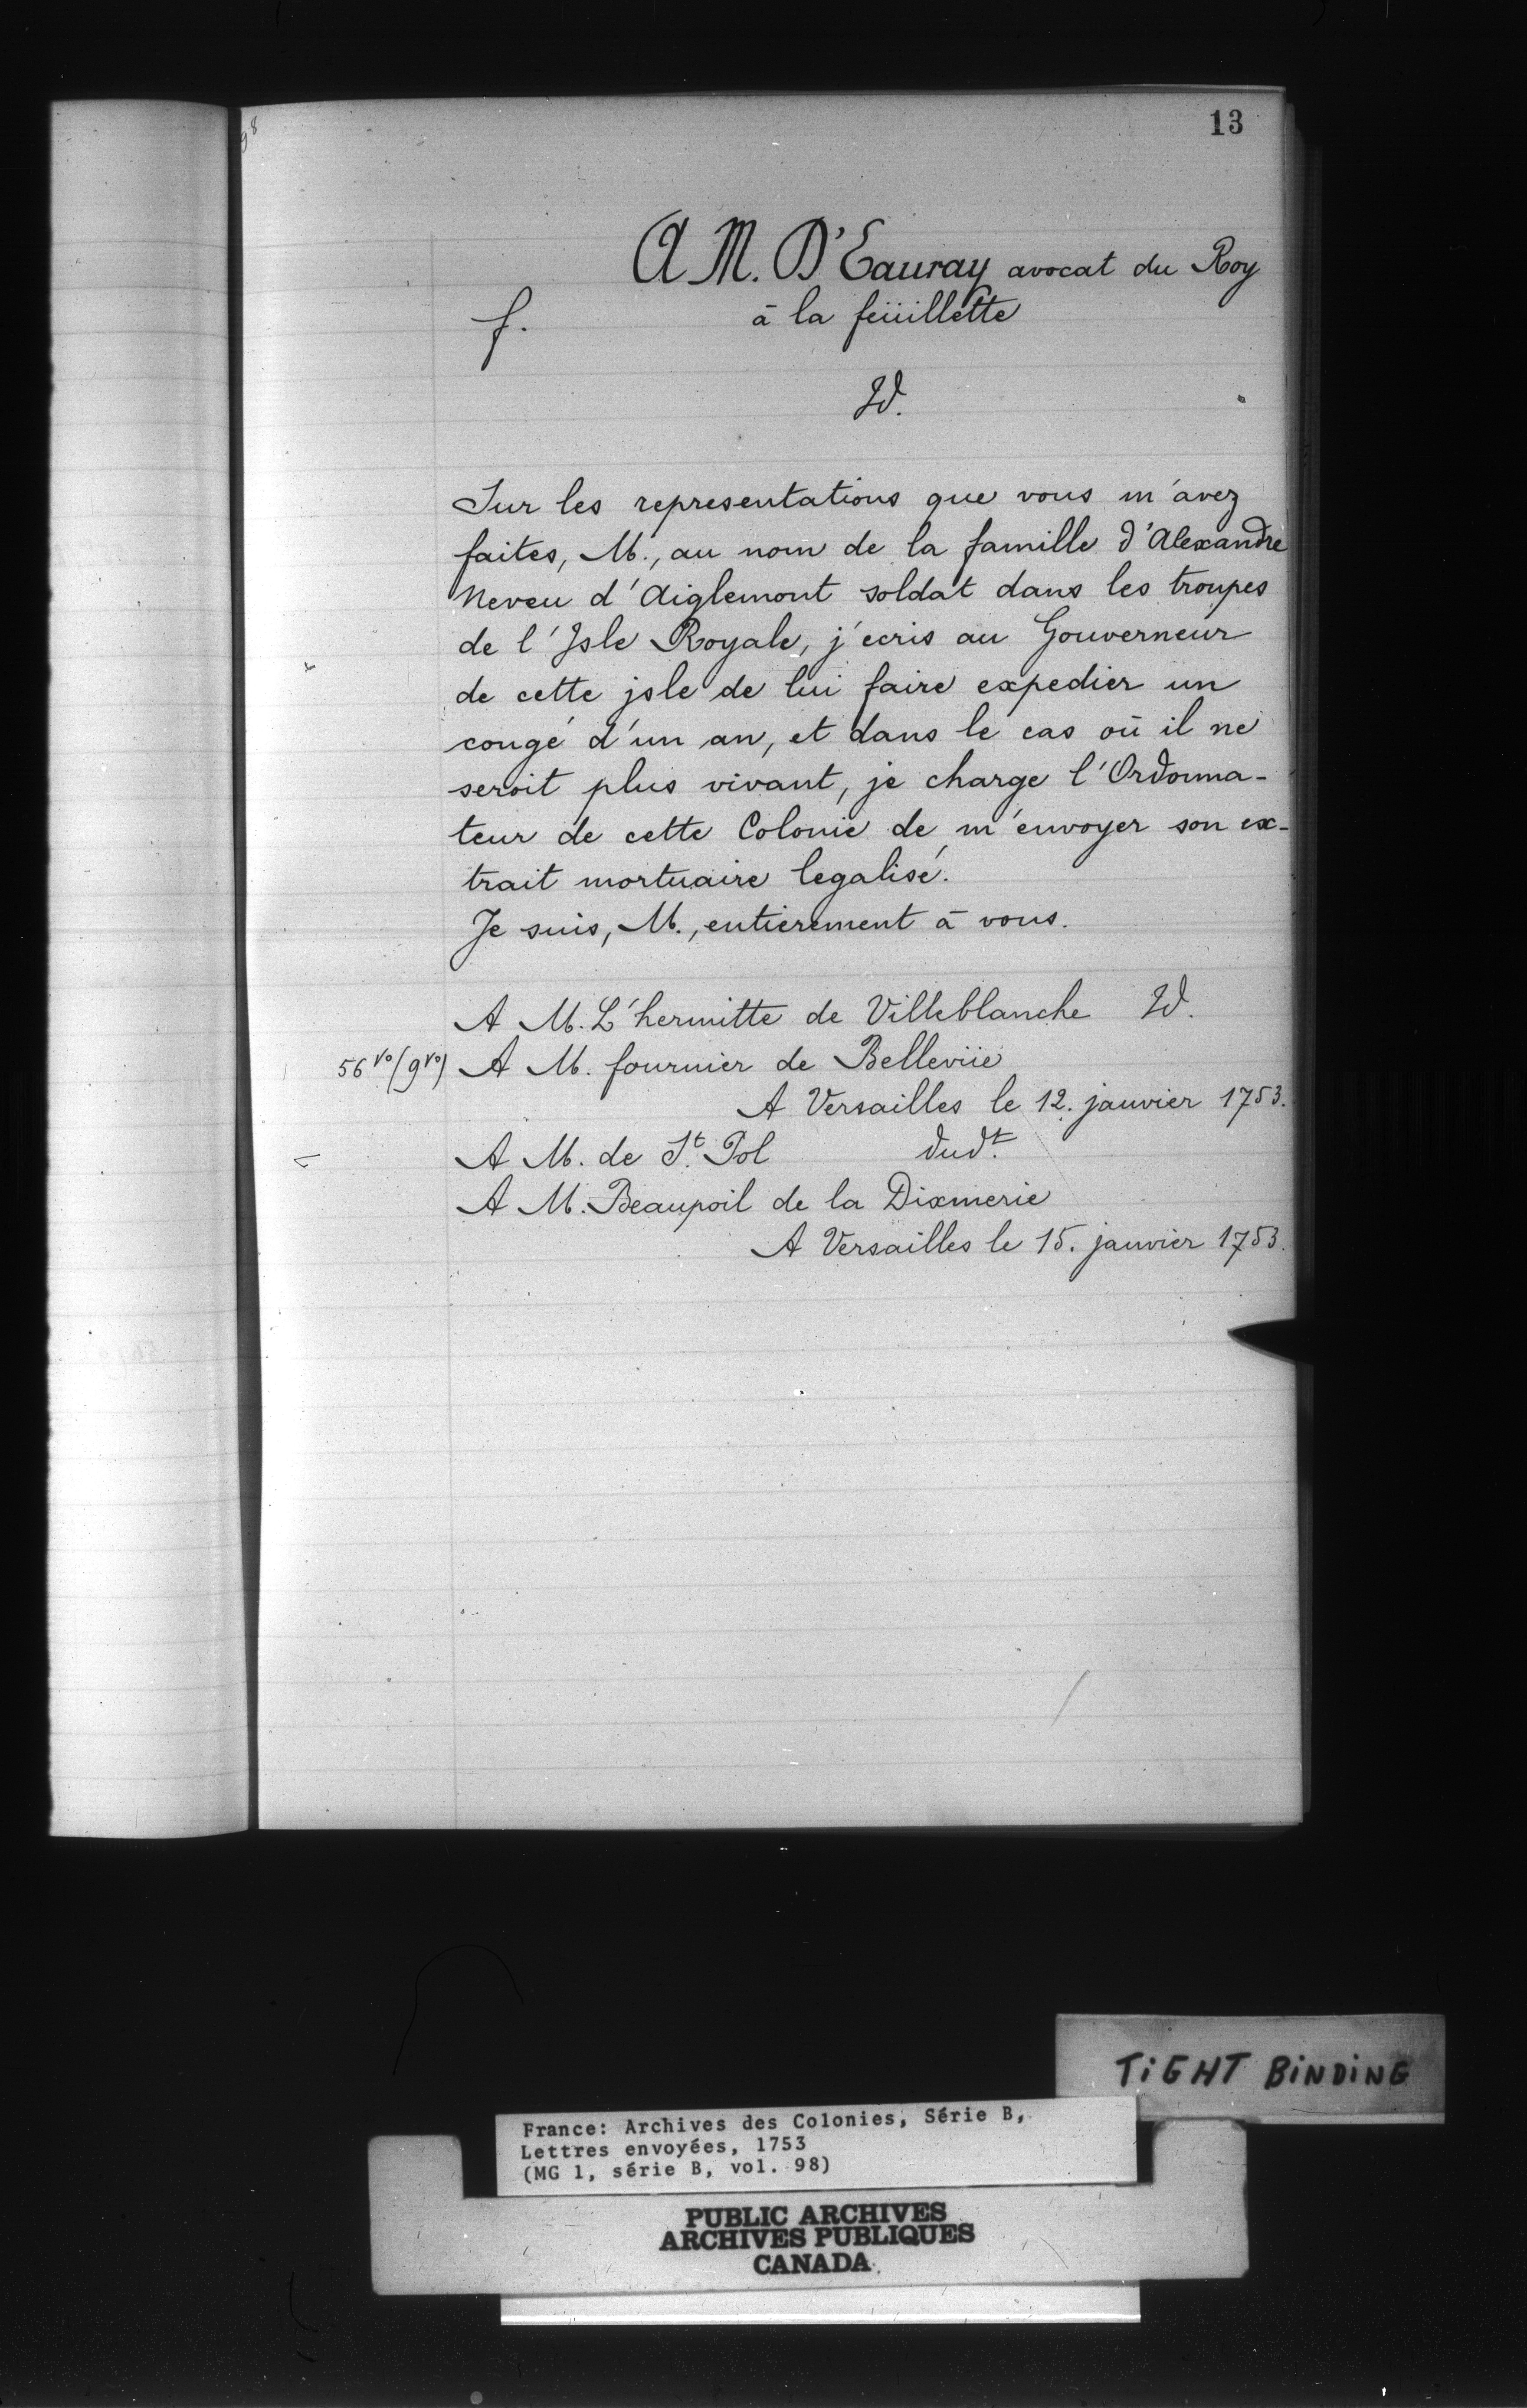 13
A M. D'Eauray avocat du Roy
f.
à la feüillette
Id.
Sur les representations que vous m'avez
faites, M., au nom de la famille d'Alexandre
Neveu d'Aiglemont soldat dans les troupes
de l'Isle Royale, j'ecris au Gouverneur
de cette jsle de lui faire expedier un
congé d'un an, et dans le cas où il ne
seroit plus vivant, je charge l'Ordonna-
teur de cette Colonie de m'envoyer son ex-
trait mortuaire legalisé.
Je suis, M., entierement à vous.
A M. L'hermitte de Villeblanche Id.
56 vo (9 vo) A M. fournier de Belleviie
A Versailles le 12. janvier 1753.
A M. de St. Pol dudt.
A M. Beaupoil de la Dixmerie
A Versailles le 15. janvier 1753.
TiGHT BiNDiNG
France: Archives des Colonies, Série B,
Lettres envoyées, 1753
(MG 1, série B, vol. 98)
PUBLIC ARCHIVES
ARCHIVES PUBLIQUES
CANADA